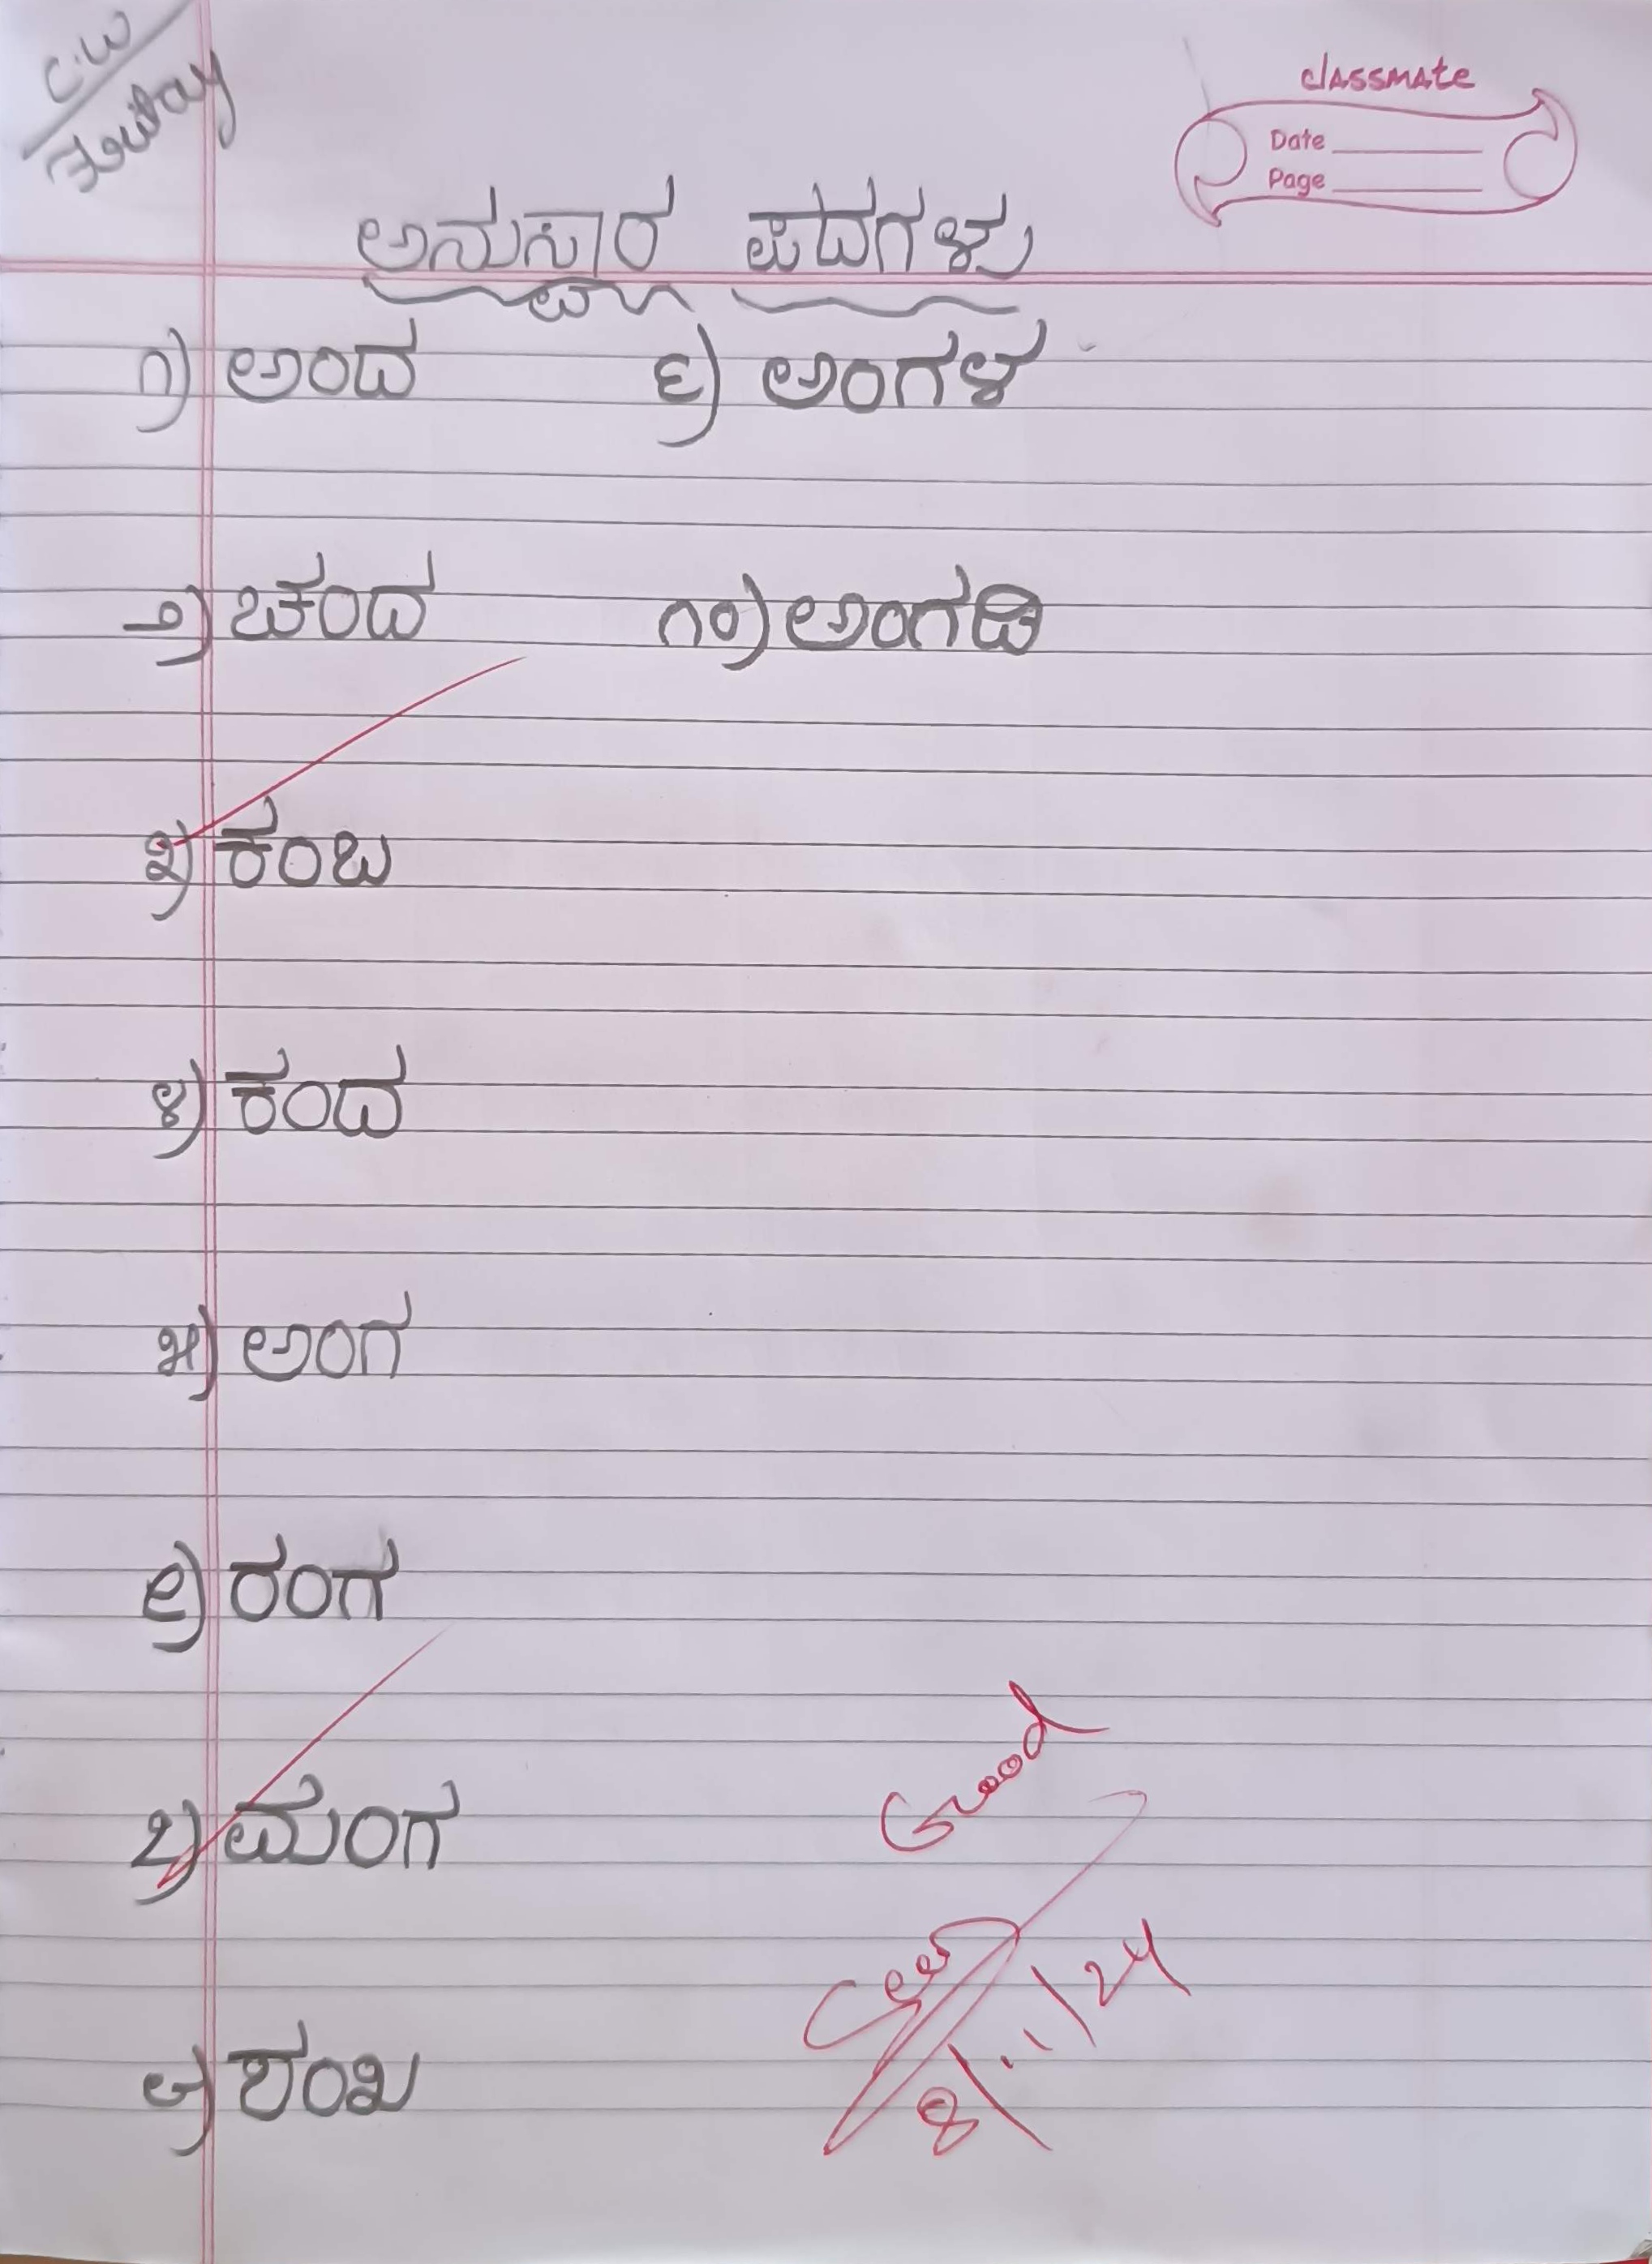 C.W
Friday
classmate
Date
Page
ಅನುಸ್ವಾರ ಪದಗಳು
೧) ಅಂದ
೯) ಅಂಗಳ
೨) ಚಂದ
೧೦) ಅಂಗಡಿ
೩) ಕಂಬ
೪) ಕಂದ
೫) ಅಂಗ
೬) ರಂಗ
೭) ಮಂಗ
೮) ಶಂಖ
Good
8/11/24